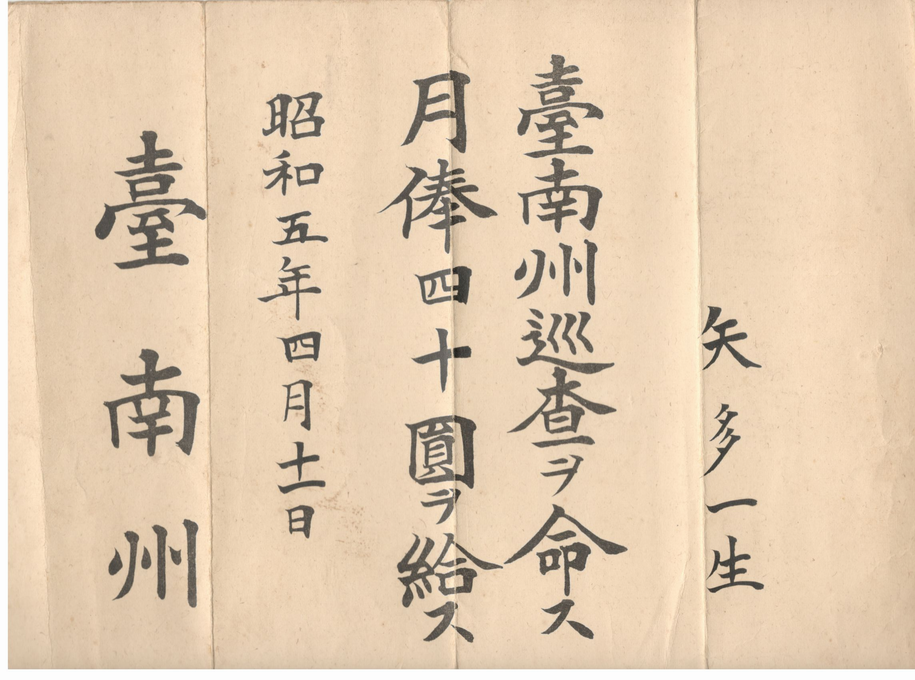 矢多一生
臺南州巡查ヲ命ス
月俸四十圓ヲ給ス
昭和五年四月十一日
臺南州